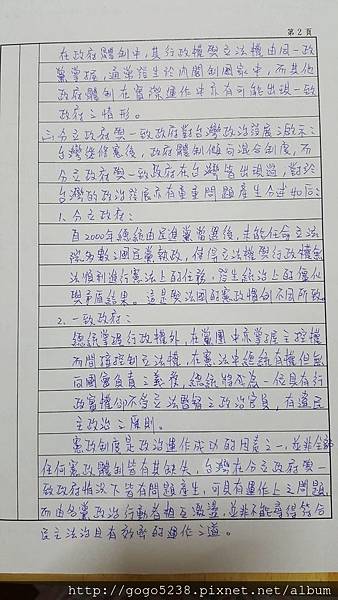 第 2 頁
在政府體制中,其行政權與立法權由同一政
黨掌握,通常發生於內閣制國家中,而其他
政府體制在實際運作中亦有可能出現一致
政府之情形。
三、分立政府與一致政府對台灣政治發展之啟示:
台灣從修憲後,政府體制傾向混合制度,而
分立政府與一致政府在台灣皆出現過,對於
台灣的政治發展亦有重要問題產生分述如后:
1. 分立政府:
自2000年總統由民進黨當選後,未能任命立法
院多數之國民黨執政,使得立法權與行政權無
法順利進行憲法上的任務,發生統治上的僵化
與矛盾結果。這是與法國的憲政慣例不同所致。
2. 一致政府:
總統掌握行政權外,在黨團中亦掌握主控權
而間接控制立法權,在憲法中總統有權但無
向國會負責之義務,總統將成為一位具有行
政實權卻不受立法監督之政治官員,有違民
主政治之原則。
憲政制度是政治運作成功的因素之一,並非全部
任何憲政體制皆有其缺失,台灣在分立政府與一
致政府情況下皆有問題產生,可見有運作上之問題,
而由各黨政治行動者相互激盪,並非不能尋得符合
民主法治且有效率的運作之道。
http://gogo5238.pixnet.net/album